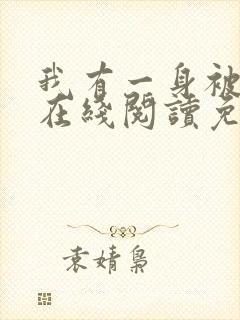 我有一身被
在綫閱讀免
袁婧梟